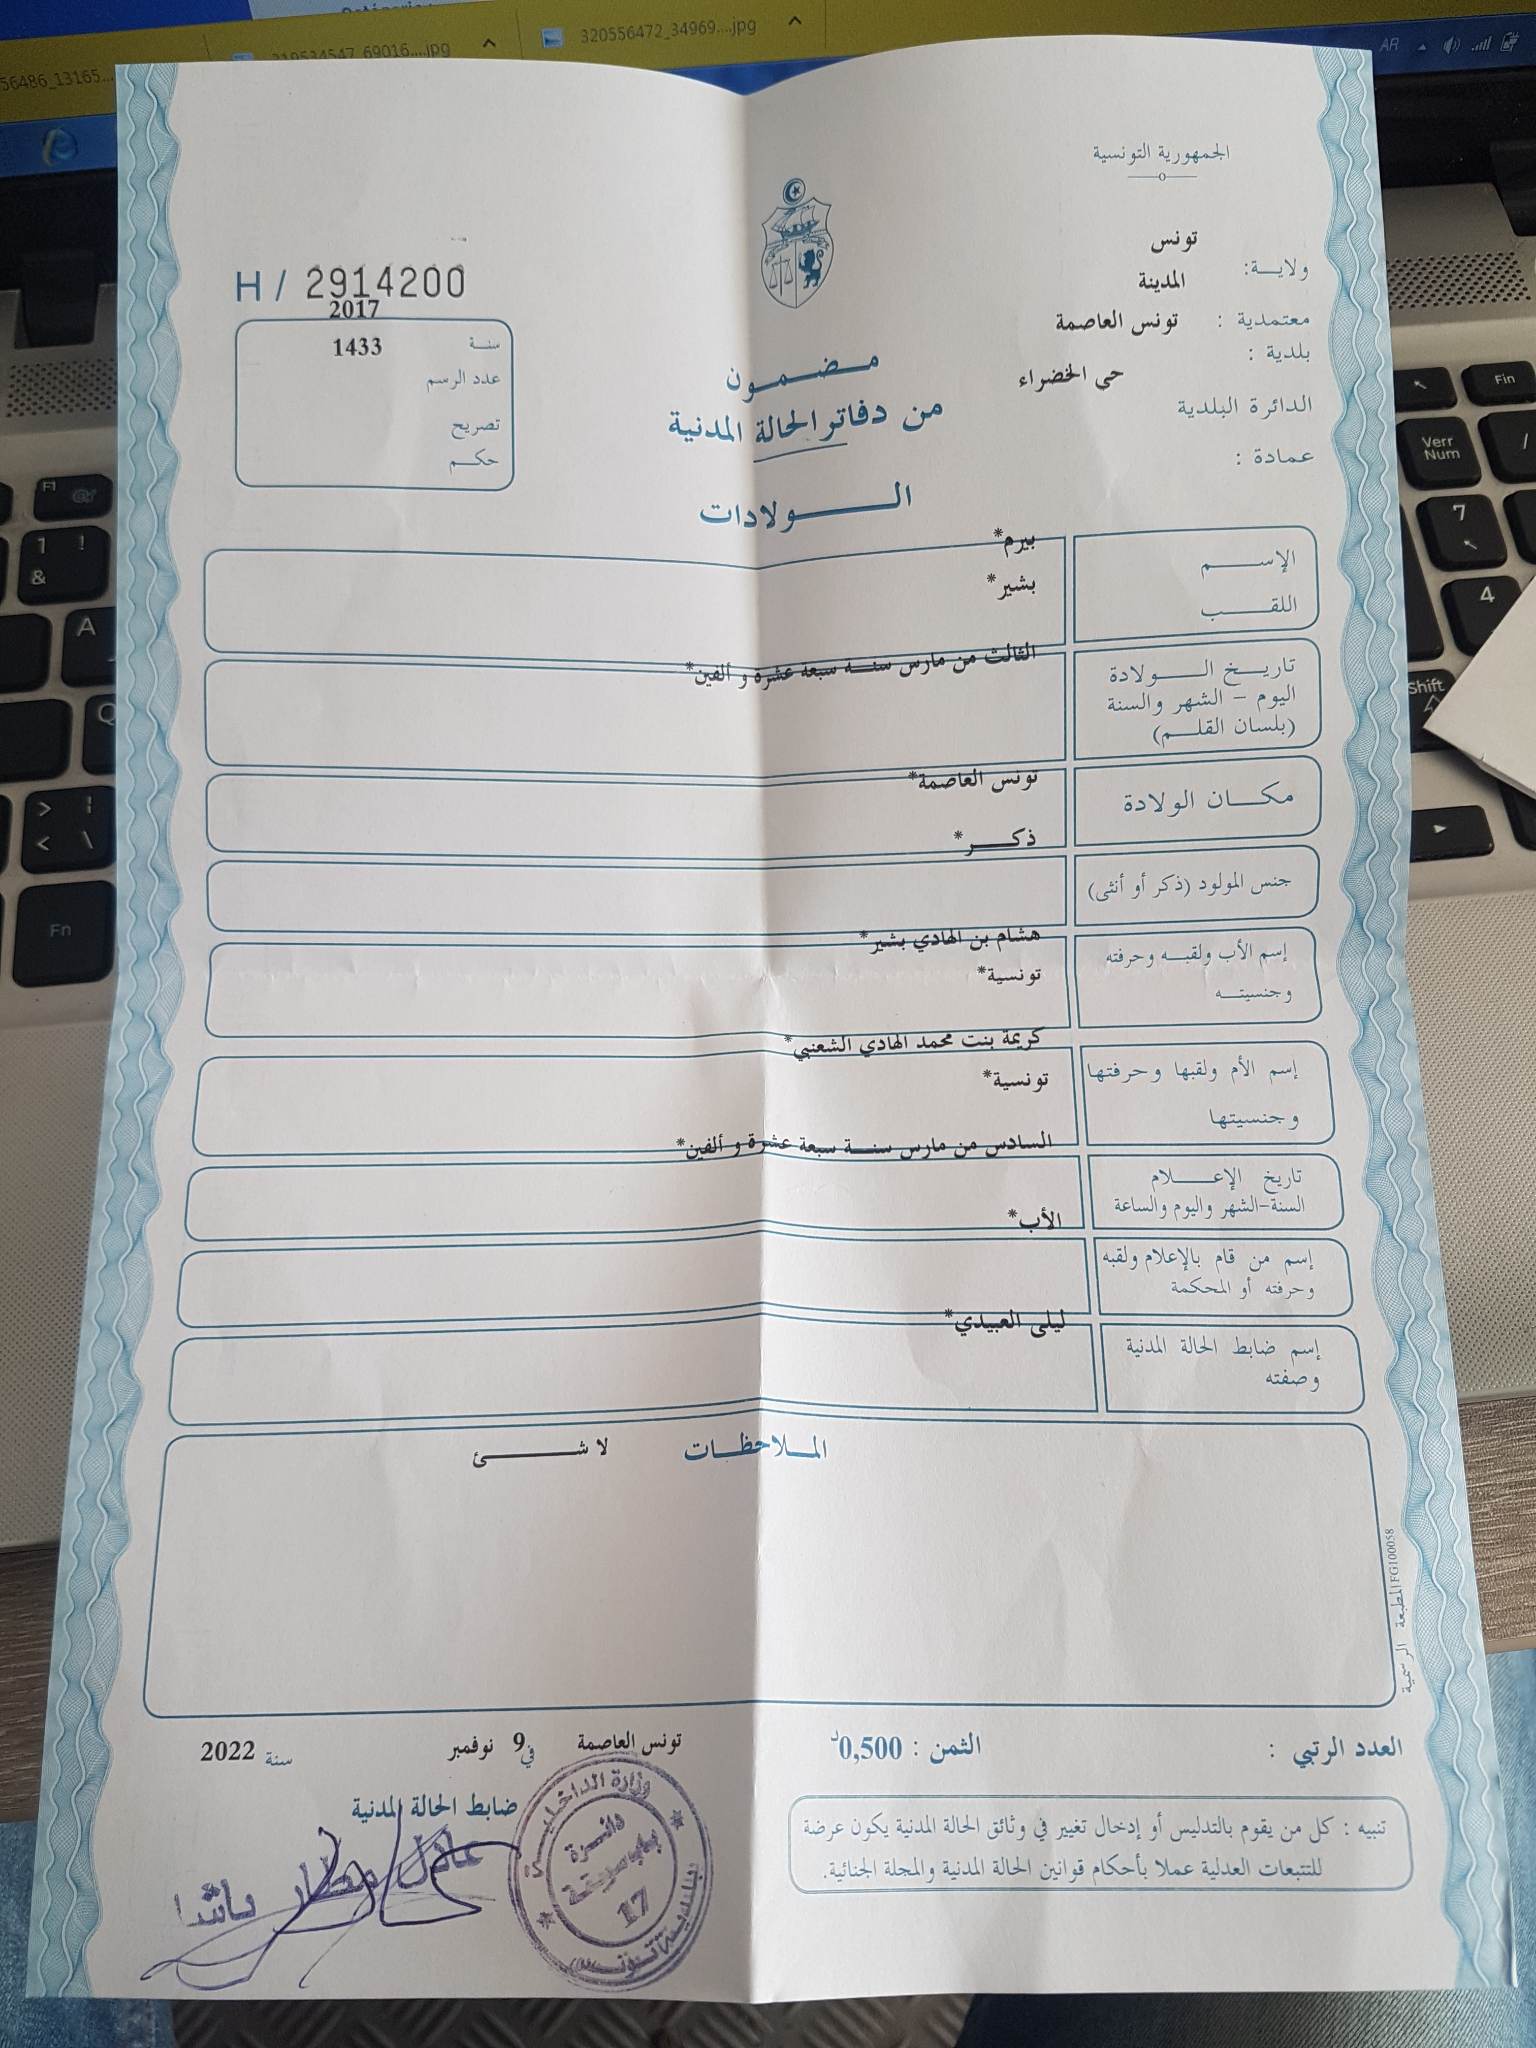 56486_13165...
319534547_69016....jpg
320556472_34969....jpg
AR
الجمهورية التونسية
تونس
ولايـــة:
المدينة
معتمدية : تونس العاصمة
بلدية :
حي الخضراء
الدائرة البلدية
عمادة :
H / 2914200
2017
سنــة
1433
عدد الرسم
تصريح
حكــم
مــضــمــون
من دفاتر الحالة المدنية
الــــولادات
الإســــم
بيرم*
اللقــــب
بشير*
تاريــخ الــــولادة
اليوم – الشهر والسنة
(بلسان القلــم)
الثالث من مارس سنــة سبعة عشرة و ألفين*
مكـــان الولادة
تونس العاصمة*
جنس المولود (ذكر أو أنثى)
ذكــــر*
إسم الأب ولقبــه وحرفته
وجنسيتــه
هشام بن الهادي بشير*
تونسية*
إسم الأم ولقبها وحرفتها
وجنسيتها
كريمة بنت محمد الهادي الشعنبي*
تونسية*
تاريخ الإعـــلام
السنة-الشهر واليوم والساعة
السادس من مارس سنــة سبعة عشرة و ألفين*
إسم من قام بالإعلام ولقبه
وحرفته أو المحكمة
الأب*
إسم ضابط الحالة المدنية
وصفته
ليلى العبيدي*
المــلاحظــات لا شـــــئ
المطبعة الرسمية FG100058
العدد الرتبي :
الثمن : 0,500د
تونس العاصمة في 9 نوفمبر سنة 2022
ضابط الحالة المدنية
تنبيه : كل من يقوم بالتدليس أو إدخال تغيير في وثائق الحالة المدنية يكون عرضة
للتتبعات العدلية عملا بأحكام قوانين الحالة المدنية والمجلة الجنائية.
وزارة الداخلية
دائرة
باب سويقة
17
بلدية تونس
عادل مطار باشا
F1
@
1 !
&
A
Q
> |
< \
Fn
Fin
Verr
Num
/
7
4
Shift